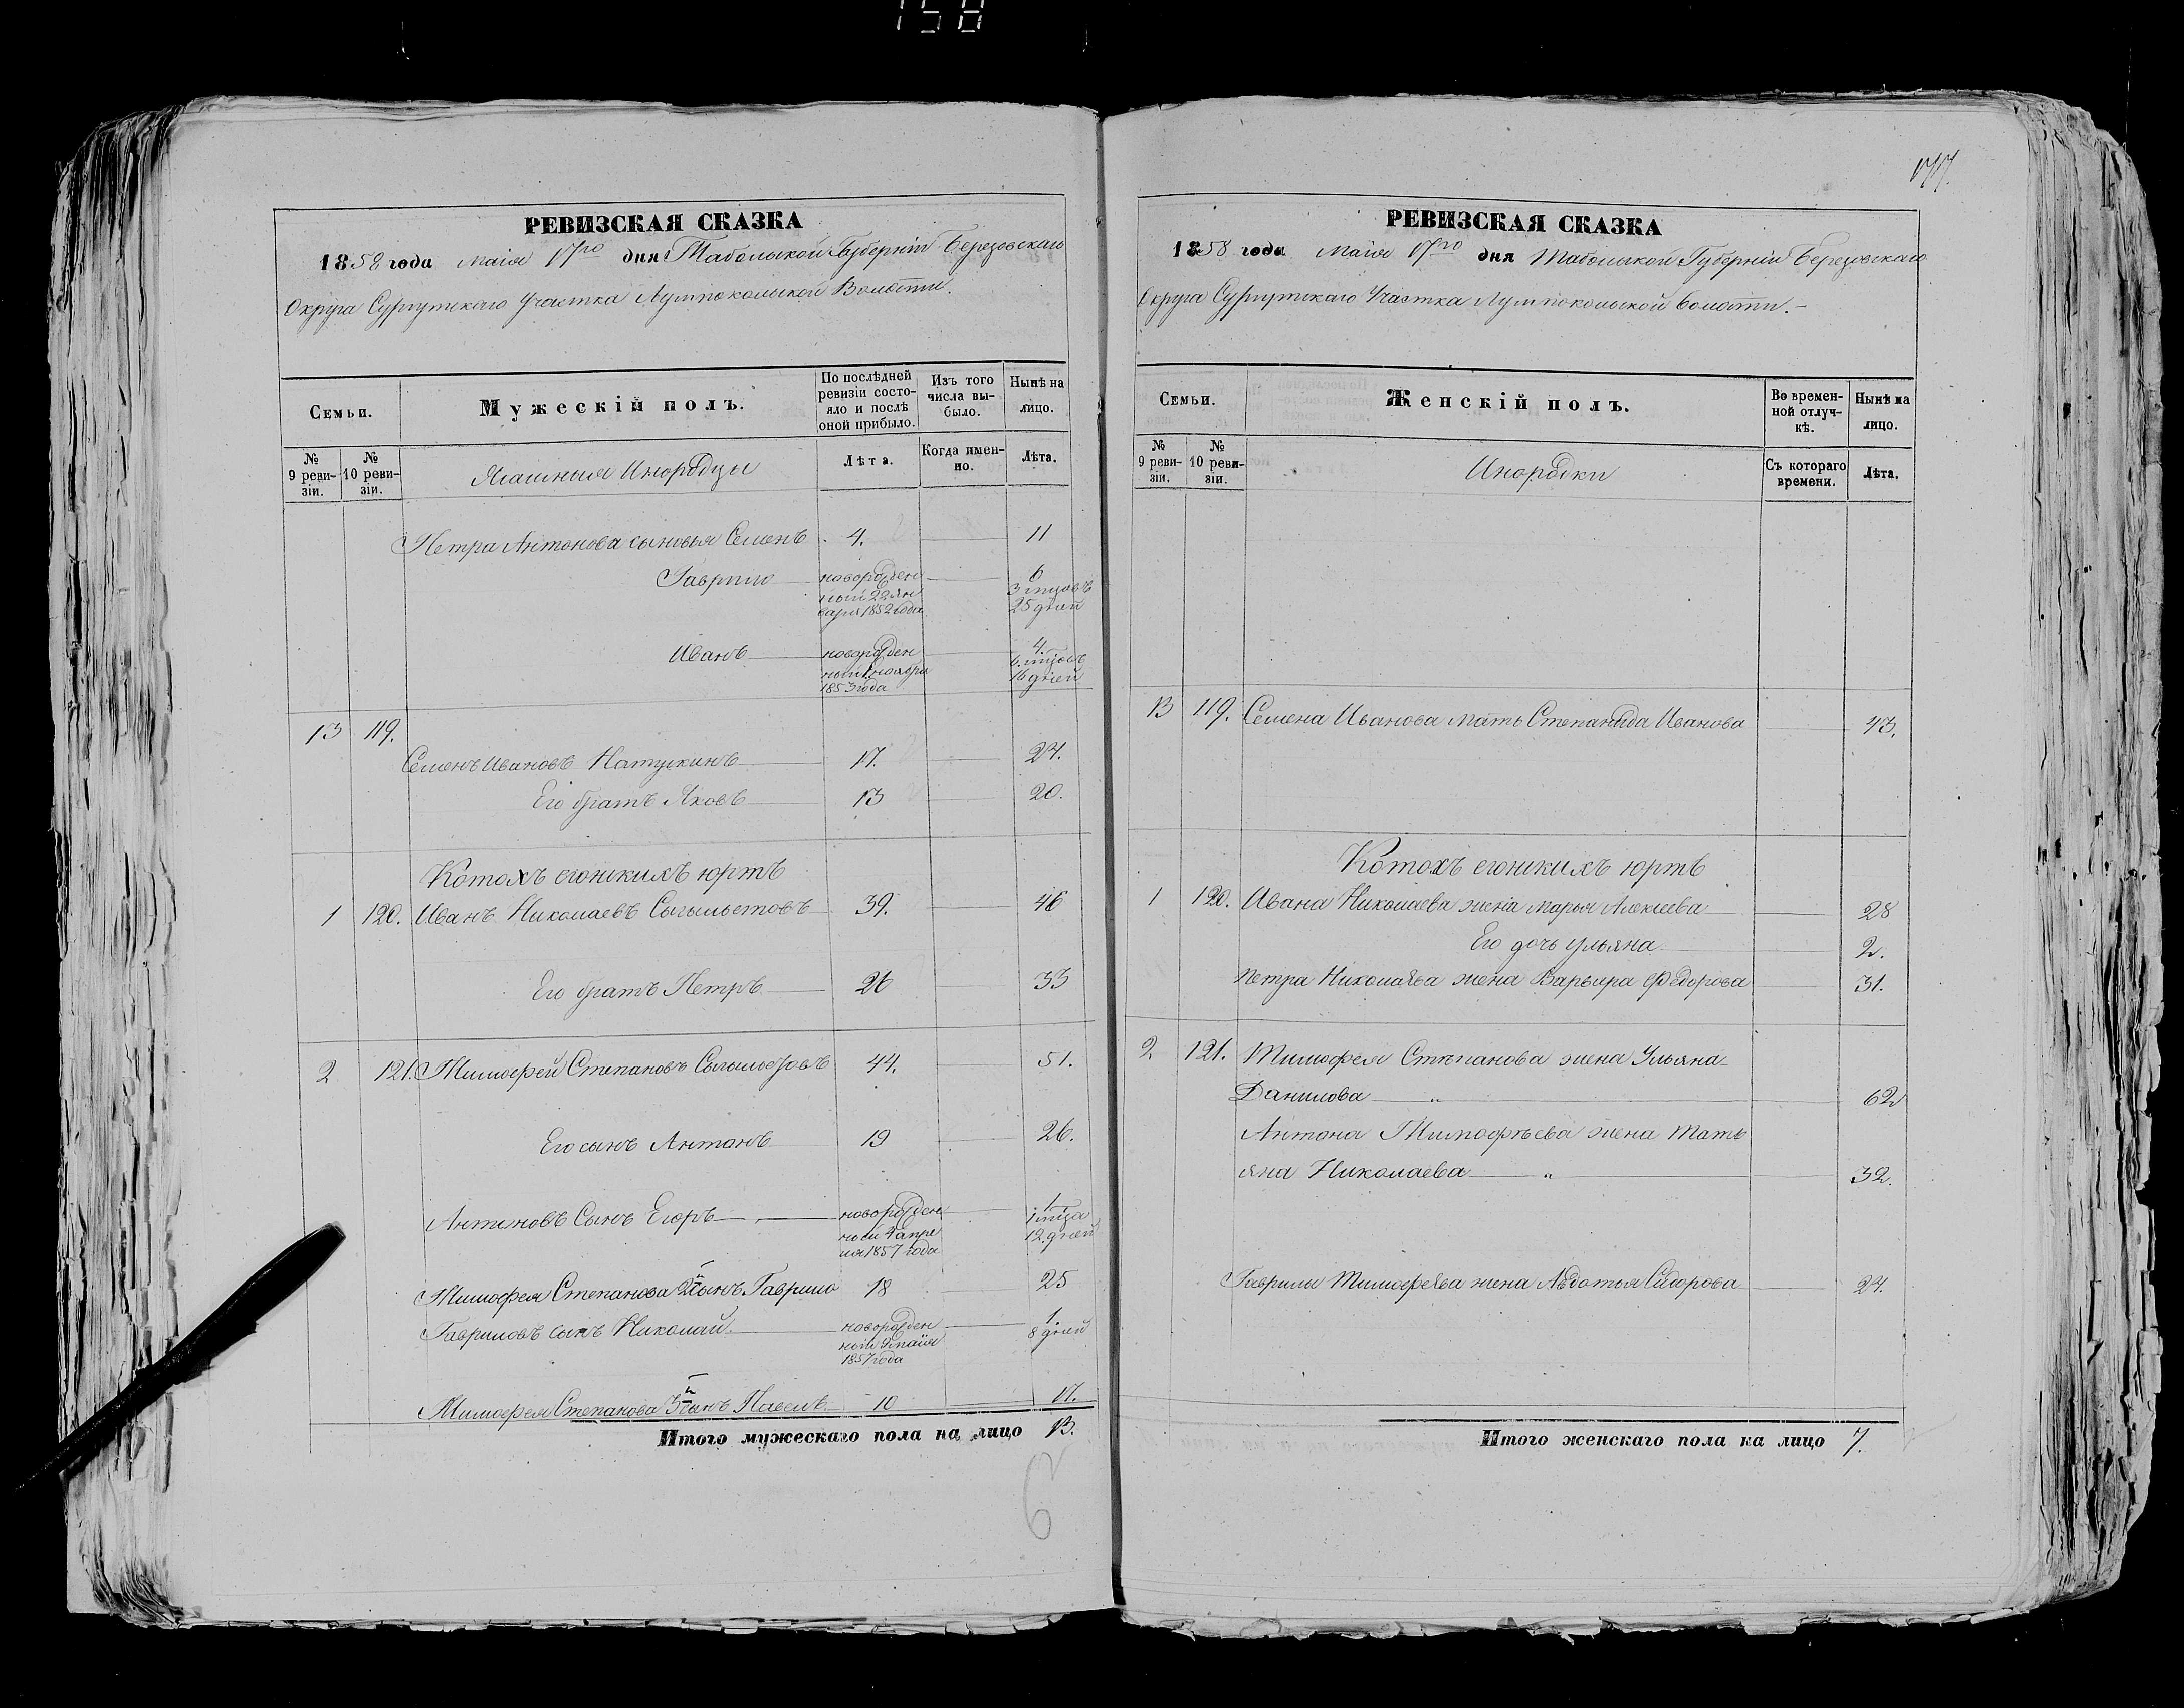 158
177.
РЕВИЗСКАЯ СКАЗКА
1858 года Маія 17го дня Табольской Губерніи Березовскаго
Округа Сургутскаго Участка Лумпокольской Волости.
Семьи.
Мужескій полъ.
По послѣдней ревизіи состо-
яло и послѣ
оной прибыло.
Изъ того
числа вы-
было.
Нынѣ на
лицо.
№
9 реви-
зіи.
№
10 реви-
зіи.
Ясашныя Инородцы
Лѣта.
Когда имен-
но.
Лѣта.
Петра Антонова сыновья Семенъ 4. 11
Гаврило новорожден 6
ный 22 Ян 3 мцовъ
варя 1852 года 25 дней
Иванъ новорожден 4.
ный 1 ноября 6. мцовъ
1853 года 16 дней
13 119.
Семенъ Ивановъ Натускинъ 17. 24.
Его братъ Яковъ 13 20.
Котохъ егонскихъ юртъ
1 120. Иванъ Николаевъ 39. 46
Его братъ Петръ 26 33
2 121. Тимофей Степановъ 44. 51.
Его сынъ Антонъ 19 26.
Антоновъ Сынъ Егоръ новорожден 1.
ный 4 апре 1 мца
ля 1857 года 12. дней
Тимофея Степанова 2й сынъ Гаврило 18 25
Гавриловъ сынъ Николай новорожден 1.
ный 9 маія 8 дней
1857 года
Тимофея Степанова 3й сынъ Павелъ 10 17.
Итого мужескаго пола на лицо 13.
6
РЕВИЗСКАЯ СКАЗКА
1858 года Маія 17го дня Табольской Губерніи Березовскаго
Округа Сургутскаго Участка Лумпокольской Волости.
Семьи.
Женскій полъ.
Во времен-
ной отлуч-
кѣ.
Нынѣ на
лицо.
№
9 реви-
зіи.
№
10 реви-
зіи.
Инородки
Съ котораго
времени.
Лѣта.
13 119. Семена Иванова мать Степанида Иванова 43.
Котохъ егонскихъ юртъ
1 120. Ивана Николаева жена Марья Алексеева 28
Его дочь Ульяна 2.
Петра Николаева жена Варвара Федорова 31.
2 121. Тимофея Степанова жена Ульяна
Данилова 62
Антона Тимофѣева жена Тать
яна Николаева 32.
Гаврилы Тимофеева жена Авдотья Сидорова 24.
Итого женскаго пола на лицо 7.